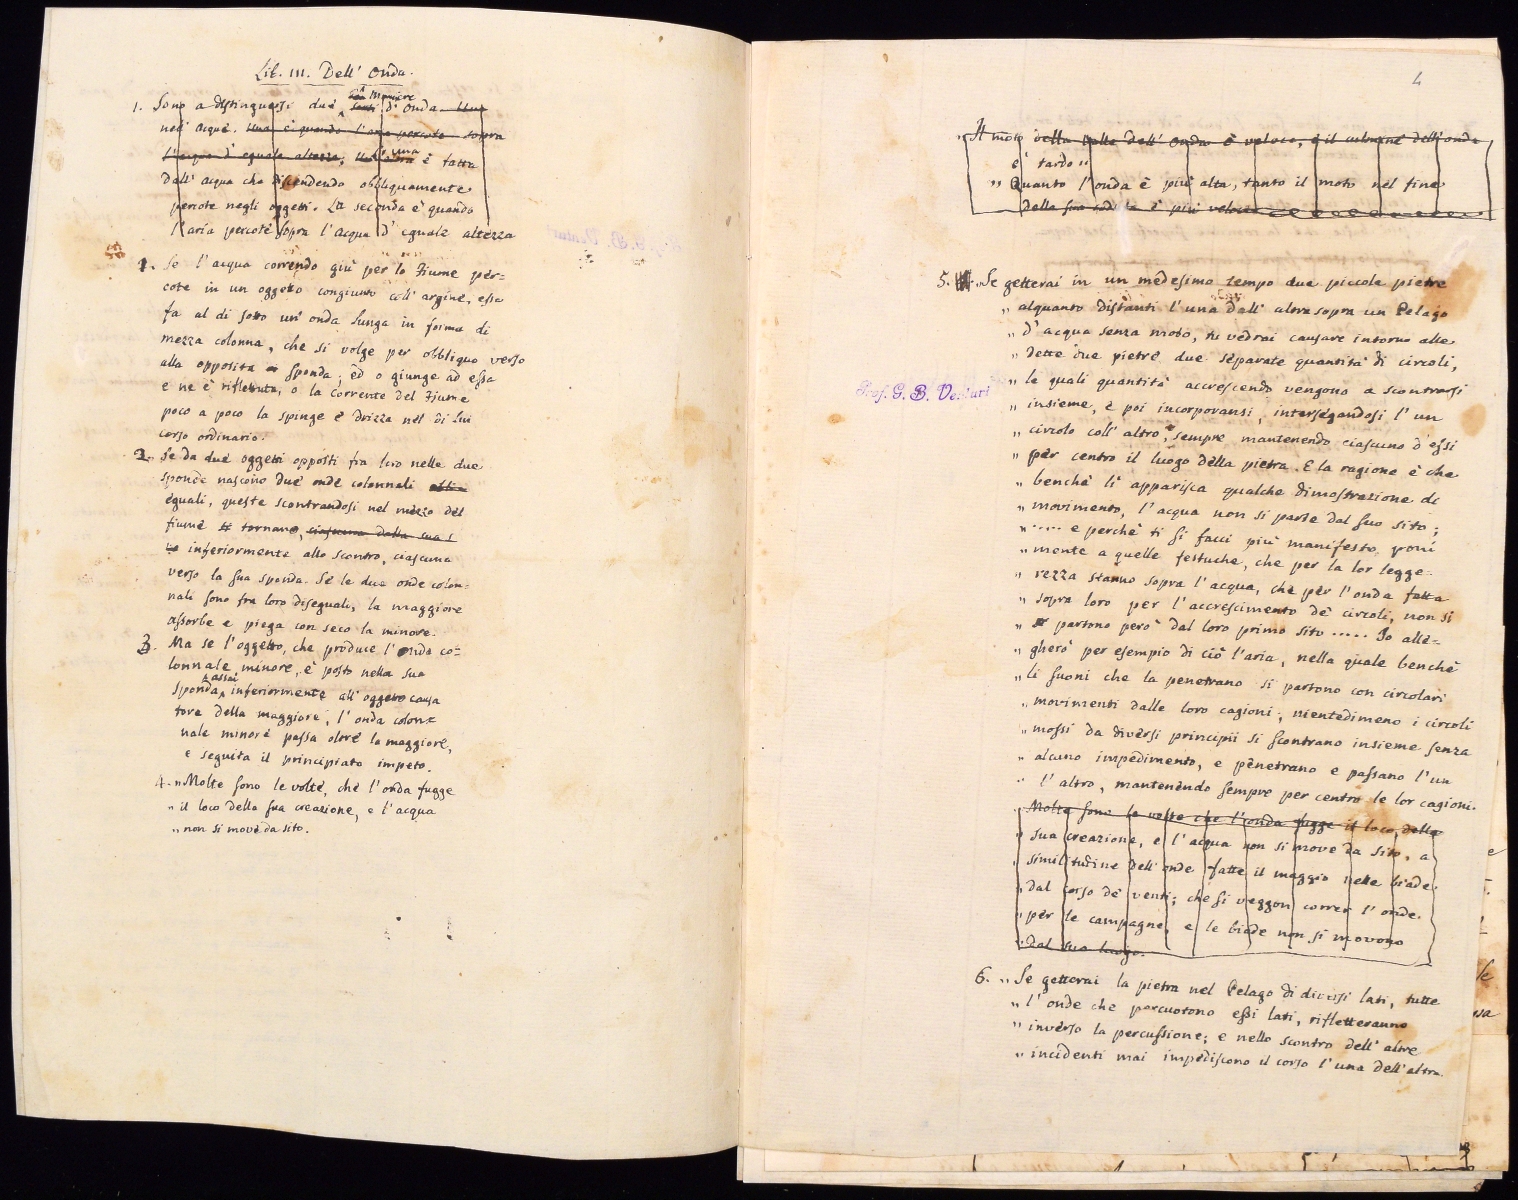 Lib. III. Dell' Onda.
1. Sono a distinguersi due maniere d' onda
nell' acque. Una è quando l'aria percote sopra
l'acqua d' eguale altezza, una è fatta
dall' acqua che discendendo obbliquamente
percote negli oggetti. La seconda è quando
l'aria percote sopra l'acqua d' eguale altezza
1. Se l' acqua correndo giù per lo Fiume per=
cote in un oggetto congiunto coll' argine, essa
fa al di sotto un' onda lunga in forma di
mezza colonna, che si volge per obbliquo verso
alla opposita sponda; ed o giunge ad essa
e ne è riflettuta, o la corrente del Fiume
poco a poco la spinge e drizza nel di lui
corso ordinario.
2. Se da due oggetti opposti fra loro nelle due
sponde nascono due onde colonnali
eguali, queste scontrandosi nel mezzo del
fiume tornano, ciascuna dalla sua s
inferiormente allo scontro, ciascuna
verso la sua sponda. Se le due onde colon=
nali sono fra loro diseguali, la maggiore
assorbe e piega con seco la minore.
3. Ma se l'oggetto, che produce l'onda co=
lonnale minore, è posto nella sua
sponda assai inferiormente all' oggetto causa
tore della maggiore, l' onda colon=
nale minore passa oltre la maggiore,
e seguita il principiato impeto.
4. „ Molte sono le volte, che l'onda fugge
„ il loco della sua creazione, e l'acqua
„ non si move da sito.
4
„ Il moto della valle dell' onda è veloce, e il culmine dell' onda
è tardo „
„ Quanto l'onda è più alta, tanto il moto nel fine
della sua è più veloce
Prof. G. B. Venturi
5. „ Se getterai in un medesimo tempo due piccole pietre
„ alquanto distanti l'una dall' altra sopra un Pelago
„ d' acqua senza moto, tu vedrai causare intorno alle
„ dette due pietre due separate quantità di circoli,
„ le quali quantità accrescendo vengono a scontrarsi
„ insieme, e poi incorporansi, intersegandosi l' un
„ circolo coll' altro, sempre mantenendo ciascuno d' essi
„ per centro il luogo della pietra. E la ragione è che
„ benchè lì apparisca qualche dimostrazione di
„ movimento, l'acqua non si parte dal suo sito;
„ ..... e perchè ti si facci più manifesto, poni
„ mente a quelle festuche, che per la lor legge=
„ rezza stanno sopra l'acqua, che per l'onda fatta
„ sopra loro per l'accrescimento de' circoli, non si
„ partono però dal loro primo sito ..... Io alle=
„ gherò per esempio di ciò l'aria, nella quale benchè
„ li suoni che la penetrano si partono con circolari
„ movimenti dalle loro cagioni; nientedimeno i circoli
„ mossi da diversi principii si scontrano insieme senza
„ alcuno impedimento, e penetrano e passano l'un
„ l' altro, mantenendo sempre per centro le lor cagioni.
„ Molte sono le volte che l'onda fugge il loco della
„ sua creazione, e l' acqua non si move da sito, a
„ similitudine dell' onde fatte il maggio nelle biade
„ dal corso de' venti; che si veggon correr l' onde
„ per le campagne, e le biade non si movono
„ dal suo luogo.
6. „ Se getterai la pietra nel Pelago di diversi lati, tutte
„ l' onde che percuotono essi lati, rifletteranno
„ inverso la percussione; e nello scontro dell' altre
„ incidenti mai impediscono il corso l' una dell' altra.